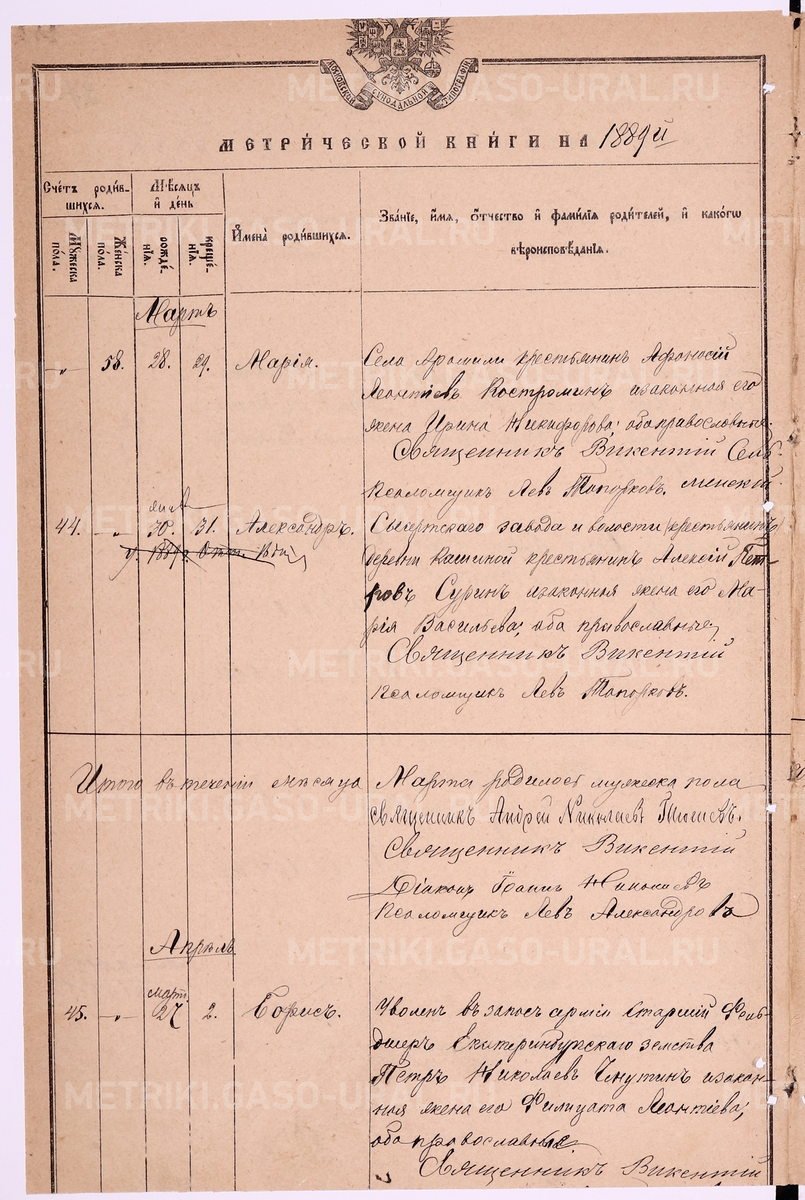 МОСКОВСКОЙ СУНОДАЛЬНОЙ ТИПОГРАФІИ
МЕТРИ́ЧЕСКОЙ КНИ́ГИ НА 1889й
Сче́тъ роди́в-
шихся.
Мꙋжеска пола.
Же́нска пола.
Мѣсяцъ
и́ де́нь
рожде́-
нія.
креще́-
нія.
И҆мена̀ роди́вшихся.
Зва́ніе, и҆́мя, ѻ҆́тчество и҆ фами́лія роди́телей, и҆ како́гѡ
вѣроисповѣ́данія.
Мартъ
„ 58. 28. 29. Марія. Села Арамили крестьянинъ Афонасій
Леонтіевъ Костроминъ изаконная его
жена Ирина Никифорова; обаправославные.
Священникъ Викентій Сель-
менской
Псаломщикъ Левъ Топорковъ.
44. „ 30. 31. Александръ. Сысертскаго завода и волости крестьянинъ
деревни Кашиной крестьянинъ Алексій Пет-
ровъ Суринъ изаконная жена его Ма-
рія Васильева; оба православные;
Священникъ Викентій
Псаломщикъ Левъ Топорковъ.
Итого въ теченіи мѣсяца Марта родилось мужеска пола
Священникъ Андрей Николаевъ
Священникъ Викентій
Діаконъ Іоаннъ
Псаломщикъ Левъ Александровъ
Апрѣль
март.
45. „ 27 2. Борисъ. Уволен. въ запасъ арміи Старшій Фель-
дшеръ Екатеринбургскаго земства
Петръ Николаевъ изакон-
ная жена его Филицата Леонтіева;
оба православные
Священникъ Викентій
METRIKI.GASO-URAL.RU